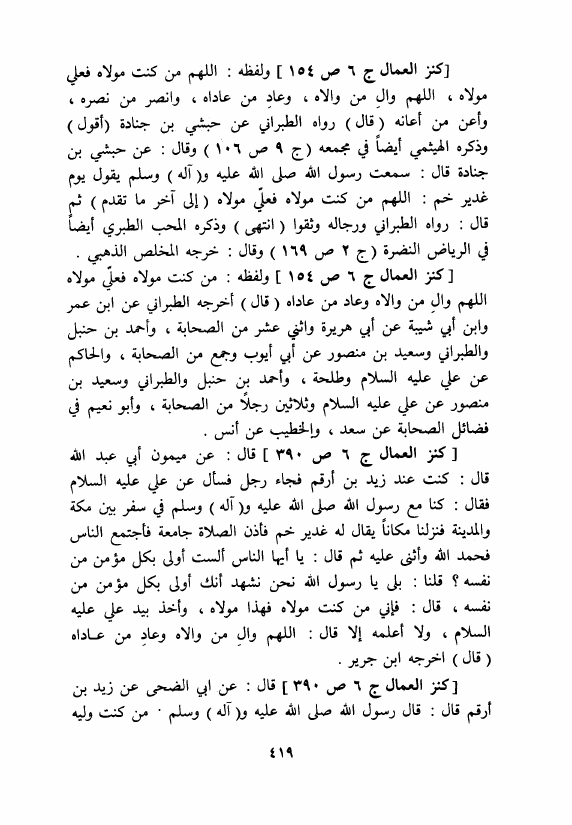 [كنز العمال ج ٦ ص ١٥٤ ] ولفظه : اللهم من كنت مولاه فعلي
مولاه ، اللهم والِ من والاه ، وعادِ من عاداه ، وانصر من نصره ،
وأعن من أعانه ( قال ) رواه الطبراني عن حبشي بن جنادة (أقول)
وذكره الهيثمي أيضاً في مجمعه ( ج ٩ ص ١٠٦ ) وقال : عن حبشي بن
جنادة قال : سمعت رسول الله صلى الله عليه و( آله ) وسلم يقول يوم
غدير خم : اللهم من كنت مولاه فعليّ مولاه ( إلى آخر ما تقدم ) ثم
قال : رواه الطبراني ورجاله وثقوا ( انتهى ) وذكره المحب الطبري أيضاً
في الرياض النضرة ( ج ٢ ص ١٦٩ ) وقال : خرجه المخلص الذهبي .
[ كنز العمال ج ٦ ص ١٥٤ ] ولفظه : من كنت مولاه فعليّ مولاه
اللهم والِ من والاه وعاد من عاداه ( قال ) أخرجه الطبراني عن ابن عمر
وابن أبي شيبة عن أبي هريرة واثني عشر من الصحابة ، وأحمد بن حنبل
والطبراني وسعيد بن منصور عن أبي أيوب وجمع من الصحابة ، والحاكم
عن علي عليه السلام وطلحة ، وأحمد بن حنبل والطبراني وسعيد بن
منصور عن علي عليه السلام وثلاثين رجلًا من الصحابة ، وأبو نعيم في
فضائل الصحابة عن سعد ، والخطيب عن أنس .
[ كنز العمال ج ٦ ص ٣٩٠ ] قال : عن ميمون أبي عبد الله
قال : كنت عند زيد بن أرقم فجاء رجل فسأل عن علي عليه السلام
فقال : كنا مع رسول الله صلى الله عليه و( آله ) وسلم في سفر بين مكة
والمدينة فنزلنا مكاناً يقال له غدير خم فأذن الصلاة جامعة فأجتمع الناس
فحمد الله وأثنى عليه ثم قال : يا أيها الناس ألست أولى بكل مؤمن من
نفسه ؟ قلنا : بلى يا رسول الله نحن نشهد أنك أولى بكل مؤمن من
نفسه ، قال : فإني من كنت مولاه فهذا مولاه ، وأخذ بيد علي عليه
السلام ، ولا أعلمه إلا قال : اللهم والِ من والاه وعادِ من عـاداه
( قال ) اخرجه ابن جرير .
[ كنز العمال ج ٦ ص ٣٩٠ ] قال : عن ابي الضحى عن زيد بن
أرقم قال : قال رسول الله صلى الله عليه و( آله ) وسلم · من كنت وليه
٤١٩